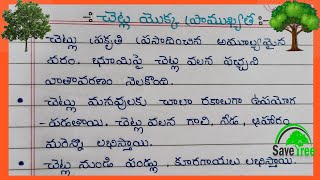 -: చెట్ల యొక్క ప్రాముఖ్యత :-
-చెట్లు ప్రకృతి ప్రసాదించిన అమూల్యమైన
వరం. భూమిపై చెట్ల వలన పచ్చని
వాతావరణం నెలకొంది.
చెట్లు మానవులకు చాలా రకాలుగా ఉపయోగ
-పడతాయి. చెట్ల వలన గాలి, నీడ, ఆహారం
మరెన్నో లభిస్తాయి.
చెట్ల నుండి పండ్లు, కూరగాయలు లభిస్తాయి.
Save Tree